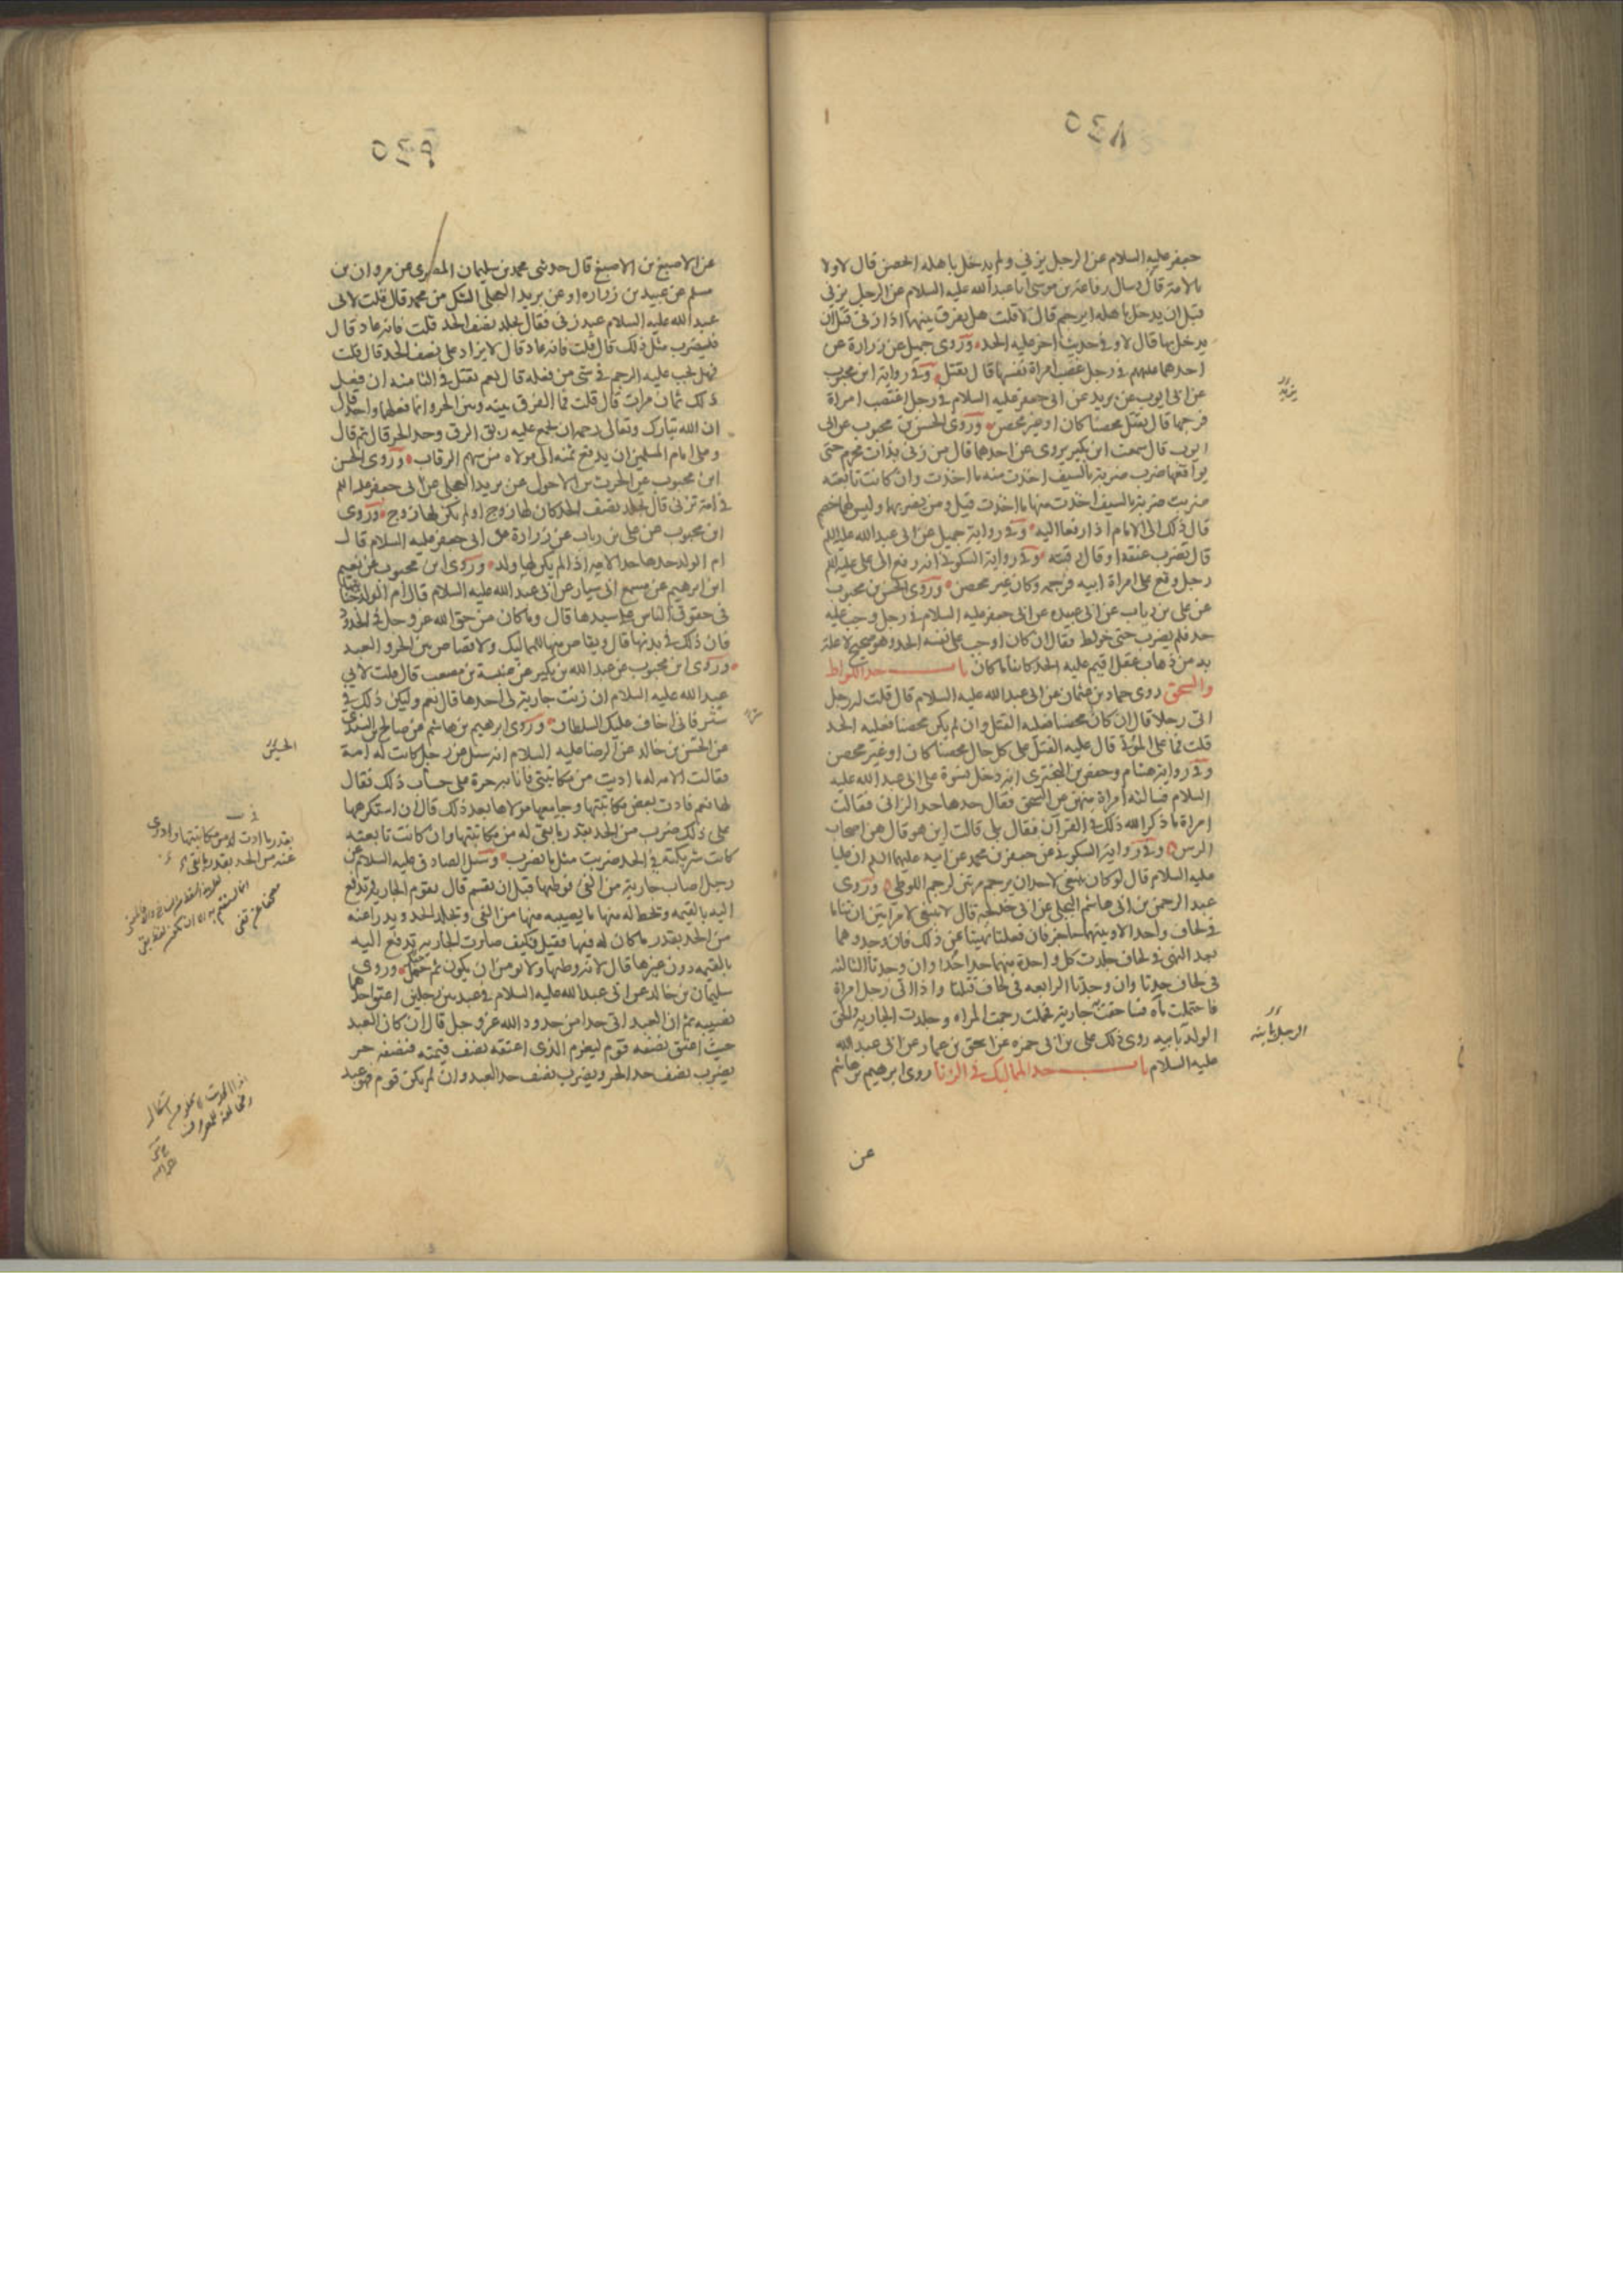 ٥٤٨
جعفر عليه السلام عن الرجل يزني ولم يدخل باهله ايحصن قال لا ولا
بالامة قال وسال رفاعة بن موسى ابا عبد الله عليه السلام عن الرجل يزني
قبل ان يدخل باهله ايرجم قال لا قلت هل يفرق بينهما اذا زنى قبل ان
يدخل بها قال لا وفي حديث اخر عليه الحد وروى جميل عن زرارة عن
احدهما عليهم في رجل غصب امراة نفسها قال يقتل وفي رواية ابن محبوب
عن ابي ايوب عن بريد عن ابي جعفر عليه السلام في رجل اغتصب امراة
فرجها قال يقتل محصنا كان او غير محصن وروى الحسن بن محبوب عن ابي
ايوب قال سمعت ابن بكير يروي عن احدهما قال من زنى بذات محرم حتى
يواقعها ضرب ضربة بالسيف اخذت منه ما اخذت وان كانت تابعته
ضربت ضربة بالسيف اخذت منها ما اخذت قيل ومن يضربهما وليس لهما خصم
قال ذلك الى الامام اذا رفعا اليه وفي رواية جميل عن ابي عبد الله عليه السلم
قال تضرب عنقه او قال رقبته وفي رواية السكوني انه رفع الى علي عليه السلم
رجل وقع على امراة ابيه فرجمه وكان غير محصن وروى الحسن بن محبوب
عن علي بن رياب عن ابي عبيدة عن ابي جعفر عليه السلام في رجل وجب عليه
حد فلم يضرب حتى خولط فقال ان كان اوجب على نفسه الحد وهو صحيح لا علة
به من ذهاب عقل اقيم عليه الحد كائنا ما كان باب حد اللواط
والسحق روى حماد بن عثمان عن ابي عبد الله عليه السلام قال قلت له رجل
اتى رجلا قال ان كان محصنا فعليه القتل وان لم يكن محصنا فعليه الحد
قلت فما على الموتى قال عليه القتل على كل حال محصنا كان او غير محصن
وفي رواية هشام وحفص بن البختري انه دخل نسوة على ابي عبد الله عليه
السلام فسالته امراة منهن عن السحق فقال حدها حد الزاني فقالت
امراة ما ذكر الله ذلك في القرآن فقال بلى قالت اين هو قال هن اصحاب
الرس وفي رواية السكوني عن جعفر بن محمد عن ابيه عليهما السلم ان عليا
عليه السلام قال لو كان ينبغي لاحد ان يرجم مرتين لرجم اللوطي وروى
عبد الرحمن بن ابي هاشم البجلي عن ابي خديجة قال لا ينبغي لامراتين ان تناما
في لحاف واحد الا وبينهما حاجز فان فعلتا نهيتا عن ذلك فان وجدوهما
بعد النهي في لحاف جلدت كل واحدة منهما حدا حدا وان وجدتا الثالثة
في لحاف حدتا وان وجدتا الرابعه في لحاف قتلتا واذا اتى رجل امراة
فاحتملت ماءه فساحقت به جارية فحملت رجمت المراه وجلدت الجارية والحق
الولد بابيه روى ذلك علي بن ابي حمزه عن اسحق بن عمار عن ابي عبد الله
عليه السلام باب حد المماليك في الزنا روى ابرهيم بن هاشم
عن
يزيد
الرجل بابنه
٥٤٩
عن الاصبغ بن الاصبغ قال حدثني محمد بن سليمان المصري عن مروان بن
مسلم عن عبيد بن زراره او عن بريد العجلي الشك من محمد قال قلت لابي
عبد الله عليه السلام عبد زنى فقال يجلد نصف الحد قلت فانه عاد قال
فليضرب مثل ذلك قال قلت فانه عاد قال لا يزاد على نصف الحد قال قلت
فهل يجب عليه الرجم في شئ من فعله قال نعم يقتل في الثامنه ان فعل
ذلك ثمان مرات قال قلت فما الفرق بينه وبين الحر وانما فعلهما واحد قال
ان الله تبارك وتعالى رحمه ان يجمع عليه ربق الرق وحد الحر قال ثم قال
وعلى امام المسلمين ان يدفع ثمنه الى مولاه من سهم الرقاب وروى الحسن
ابن محبوب عن الحرث بن الاحول عن بريد العجلي عن ابي جعفر عليه السلم
في امة تزني قال تجلد نصف الحد كان لها زوج او لم يكن لها زوج وروى
ابن محبوب عن علي بن رياب عن زرارة عن ابي جعفر عليه السلام قال
ام الولد حدها حد الامة اذا لم يكن لها ولد وروى ابن محبوب عن نعيم
ابن ابرهيم عن مسمع ابي سيار عن ابي عبد الله عليه السلام قال ام الولد جنايتها
في حقوق الناس على سيدها قال وما كان من حق الله عز وجل في الحدود
فان ذلك في بدنها قال ويقاص منها للمماليك ولا قصاص بين الحر والعبد
وروى ابن محبوب عن عبد الله بن بكير عن عنبسة بن مصعب قال قلت لابي
عبد الله عليه السلام ان زنت جارية لي احدها قال نعم وليكن ذلك في
ستر فاني اخاف عليك السلطان وروى ابرهيم بن هاشم عن صالح بن السندي
عن الحسن بن خالد عن الرضا عليه السلام انه سئل عن رجل كانت له امة
فقالت الامه له ما اديت من مكاتبتي فانا به حرة على حساب ذلك فقال
لها نعم فادت بعض مكاتبتها وجامعها مولاها بعد ذلك قال ان استكرهها
على ذلك ضرب من الحد بقدر ما بقي له من مكاتبتها وان كانت تابعته
كانت شريكته في الحد ضربت مثل ما يضرب وسئل الصادق عليه السلام عن
رجل اصاب جارية من الفئ فوطئها قبل ان يقسم قال تقوم الجارية وتدفع
اليه بالقيمه وتحط له منها ما يصيبه منها من الفئ وتجلد الحد ويدراعنه
من الحد بقدر ما كان له فيها فقيل فكيف صارت الجارية تدفع اليه
بالقيمه دون غيرها قال لانه وطئها ولا نومن ان يكون ثم حبل وروى
سليمان بن خالد عن ابي عبد الله عليه السلام في عبد بين رجلين اعتق احدهما
نصيبه ثم ان العبد اتى حدا من حدود الله عز وجل قال ان كان العبد
حيث اعتق نصفه قوم ليغرم الذي اعتقه نصف قيمته فنصفه حر
يضرب نصف حد الحر ويضرب نصف حد العبد وان لم يكن قوم فهو عبد
الحسين
بقدر ما ادت له من مكاتبتها وادرى
عنه من الحد بقدر ما بقي